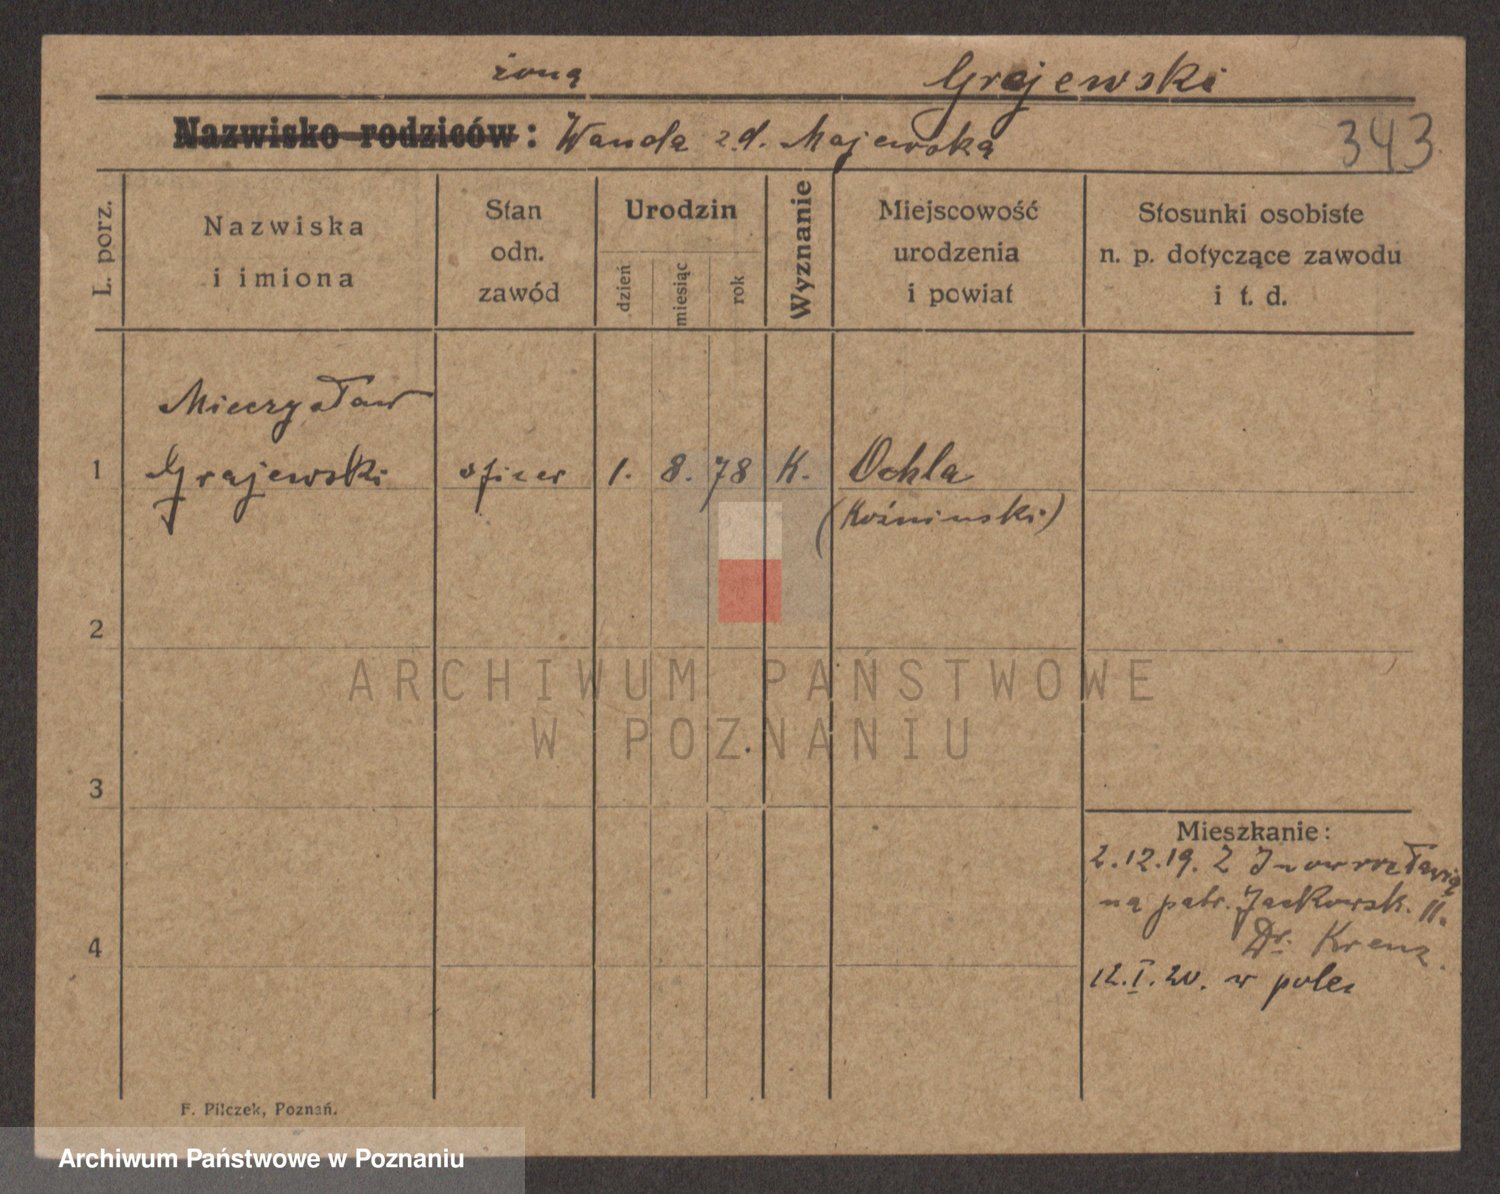 żona Grajewski
Nazwisko rodziców: Wanda z d. Majewska
343
L. porz.
Nazwiska
i imiona
Stan
odn.
zawód
Urodzin
dzień
miesiąc
rok
Wyznanie
Miejscowość
urodzenia
i powiat
Stosunki osobiste
n. p. dotyczące zawodu
i t. d.
Mieczysław
1 Grajewski oficer 1. 8. 78 K. Ochla
(Koźminski)
2
ARCHIWUM PAŃSTWOWE
W POZNANIU
3
Mieszkanie:
2.12.19. Z Inowrocławia
na patr. Jackowsk. 11.
Dr. Krenz.
4
12.I.20. w pole
F. Pilczek, Poznań.
Archiwum Państwowe w Poznaniu